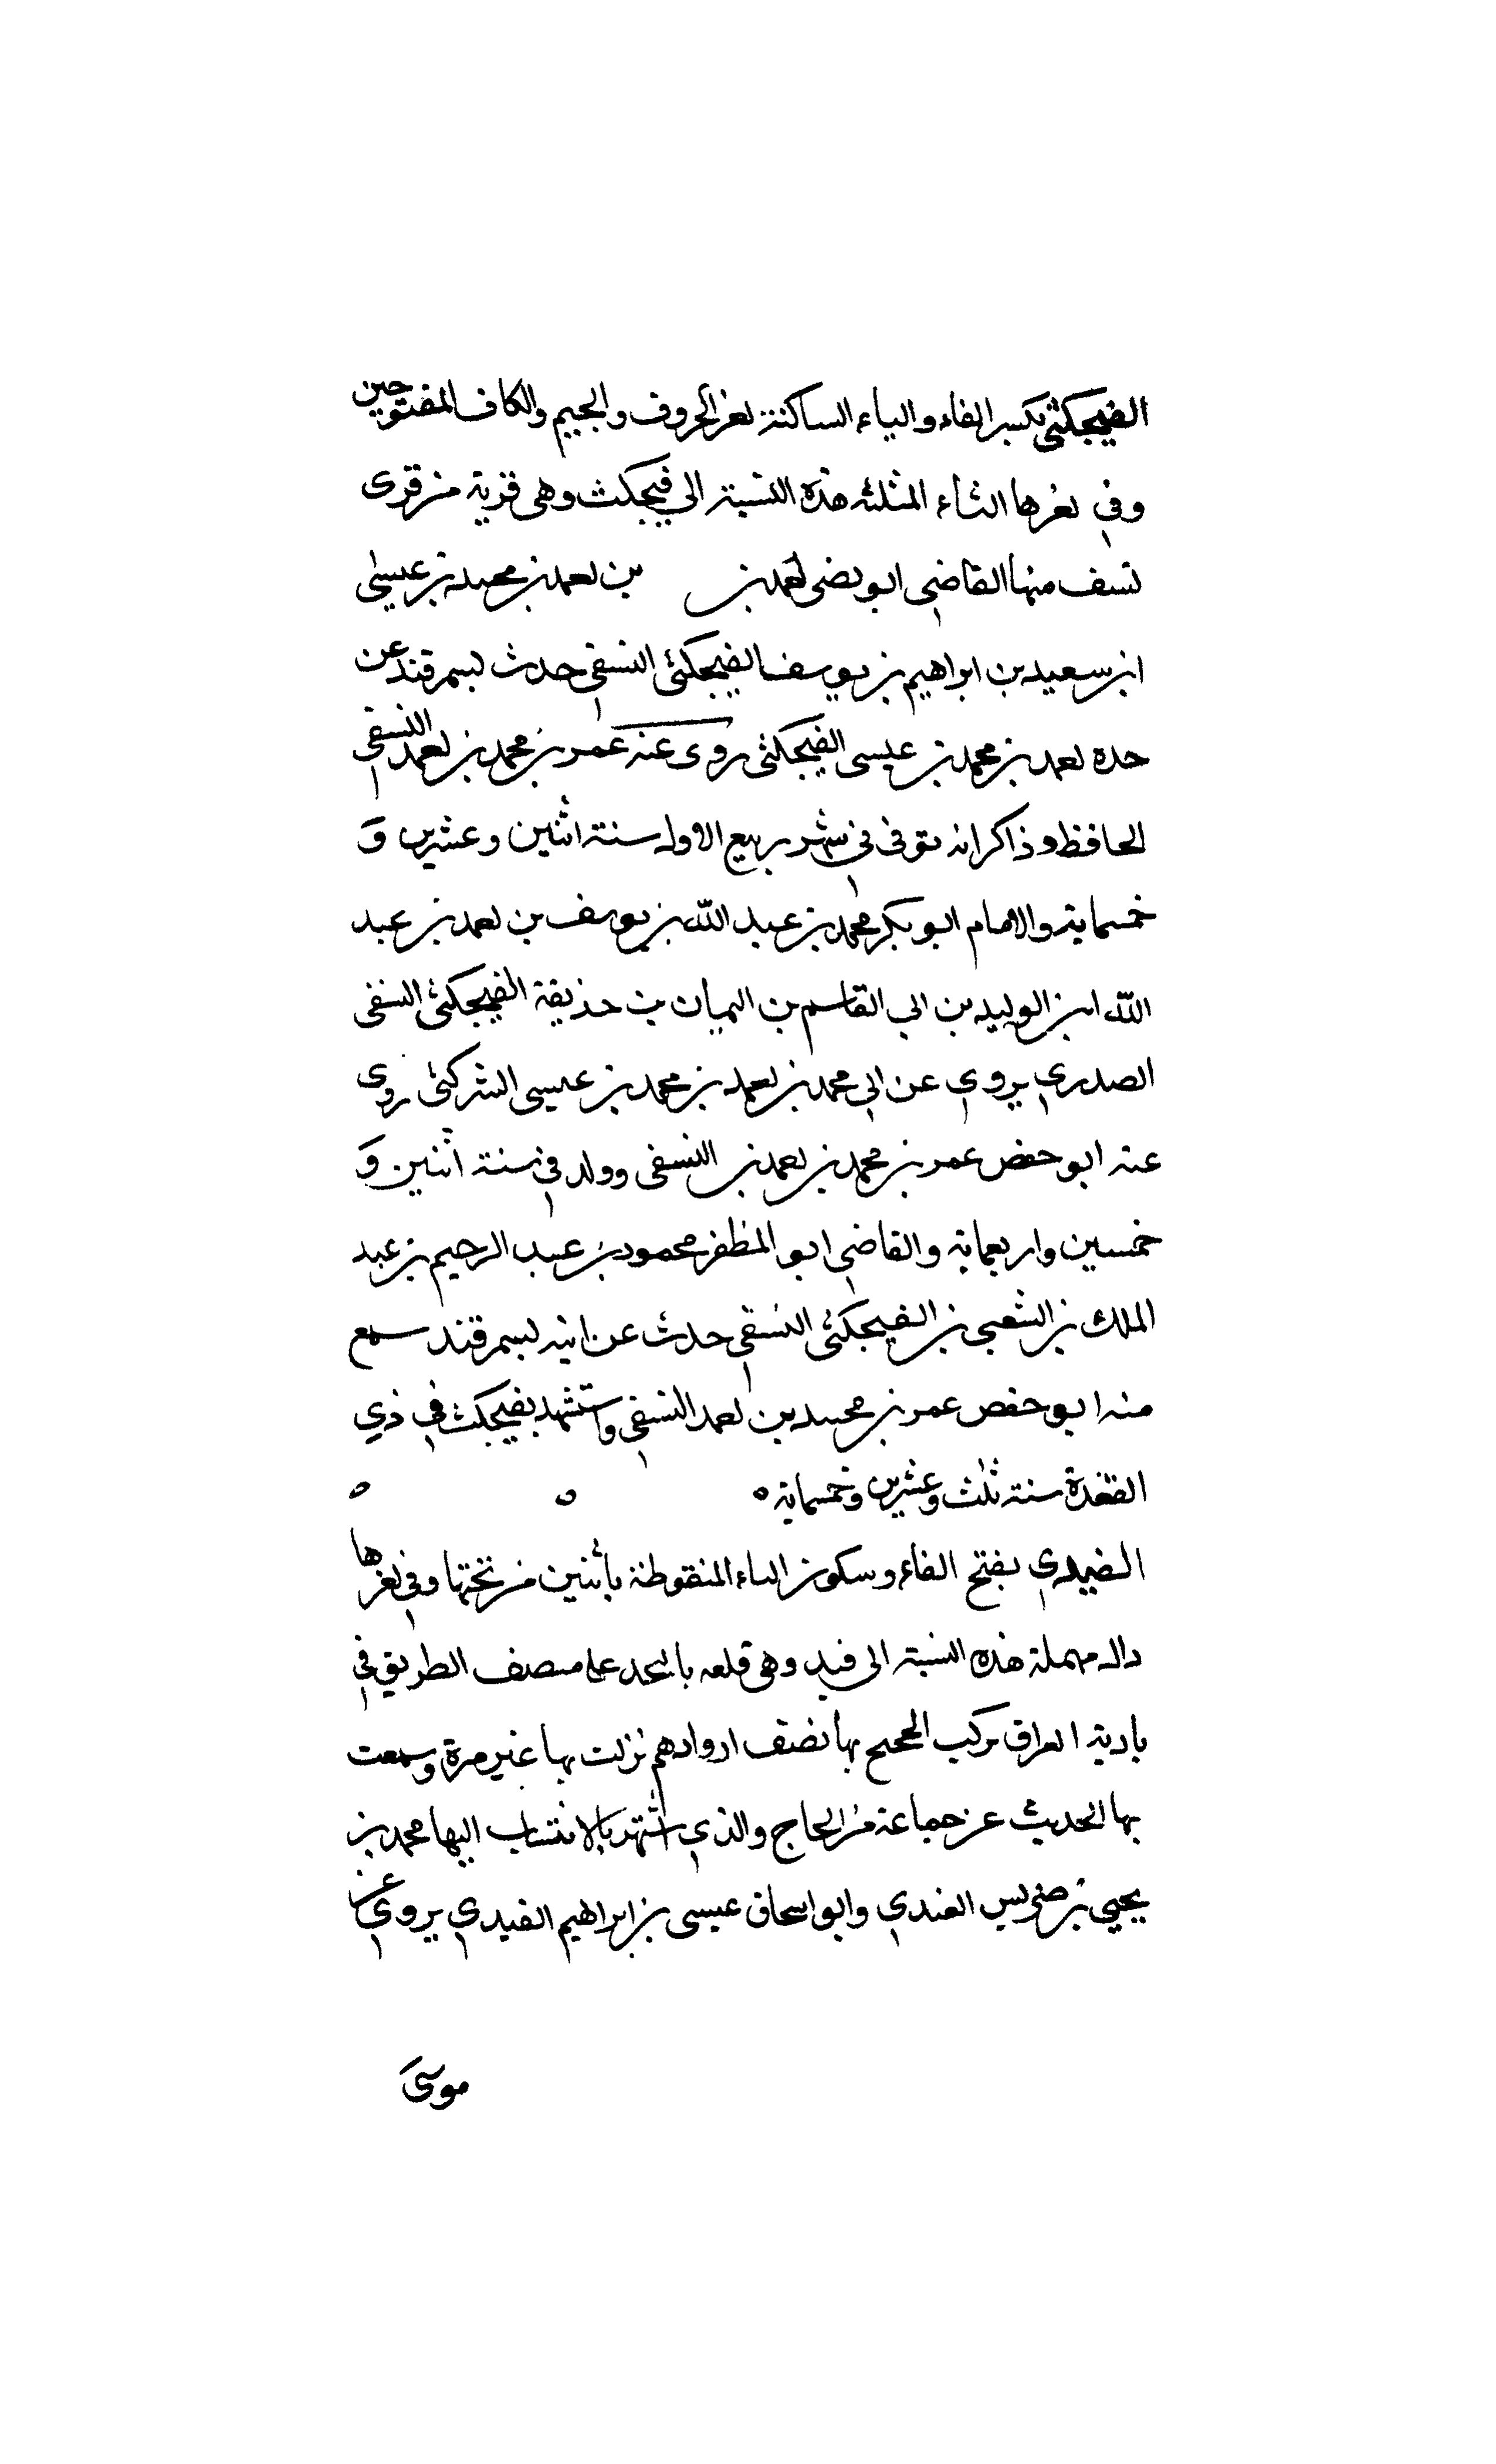 الفيجكثي بكسر الفاء والياء الساكنة لغز الحروف والجيم والكاف المفتوحين
وفي لغرها الثاء المثلثه هذه النسبة الي فيجكث وهي قرية من قرى
نسف منها القاضي ابو نصر لحمد بن بن لحمد بن محمد بن عيسى
ابن سعيد بن ابراهيم بن يوسف الفيجكثي النسفي حدث بسمرقند عن
جده لحمد بن محمد بن عيسى الفيجكثي روى عنه عمر بن محمد بن لحمد النسفي
الحافظ وذاكر انه توفي في شهر ربيع الاول سنة اثنين وعشرين و
خمسماية والامام ابو بكر محمد بن عبد الله بن يوسف بن لحمد بن عبد
الله ابن الوليد بن ابي القاسم بن اليمان بن حذيفة الفيجكثي النسفي
الصدري يروي عن ابي محمد بن لحمد بن محمد بن عيسى الشركثي روى
عنه ابو حفص عمر بن محمد بن لحمد بن النسفي وولد في سنة اثنين و
خمسين واربعماية والقاضي ابو المظفر محمود بن عبد الرحيم بن عبد
الملك بن الشعبي بن الفيجكثي النسفي حدث عن ابيه بسمرقند سمع
منه ابو حفص عمر بن محمد بن لحمد النسفي واستشهد بفيجكث في ذي
القعدة سنة ثلث وعشرين وخمسماية ه ه ه
الفيدي بفتح الفاء وسكون الياء المنقوطة باثنين من تحتها وفي لغرها
دال مهملة هذه النسبة الى فيد وهي قلعه بالنجد على منصف الطريق في
بادية العراق يركب الحجيج بها نصف ازوادهم نزلت بها غير مرة وسمعت
بها الحديث عن جماعة من الحاج والذي اشتهر بالانتساب اليها محمد بن
يحيى بن ضريس الفندي وابو اسحاق عيسى بن ابراهيم الفيدي يروي عن
موسى